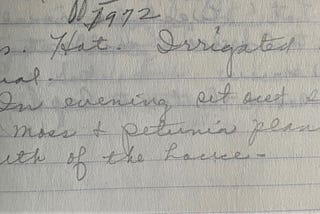 1972
s. Hot. Irrigated
ual.
In evening set out s
Moss & petunia plan
uth of the house-